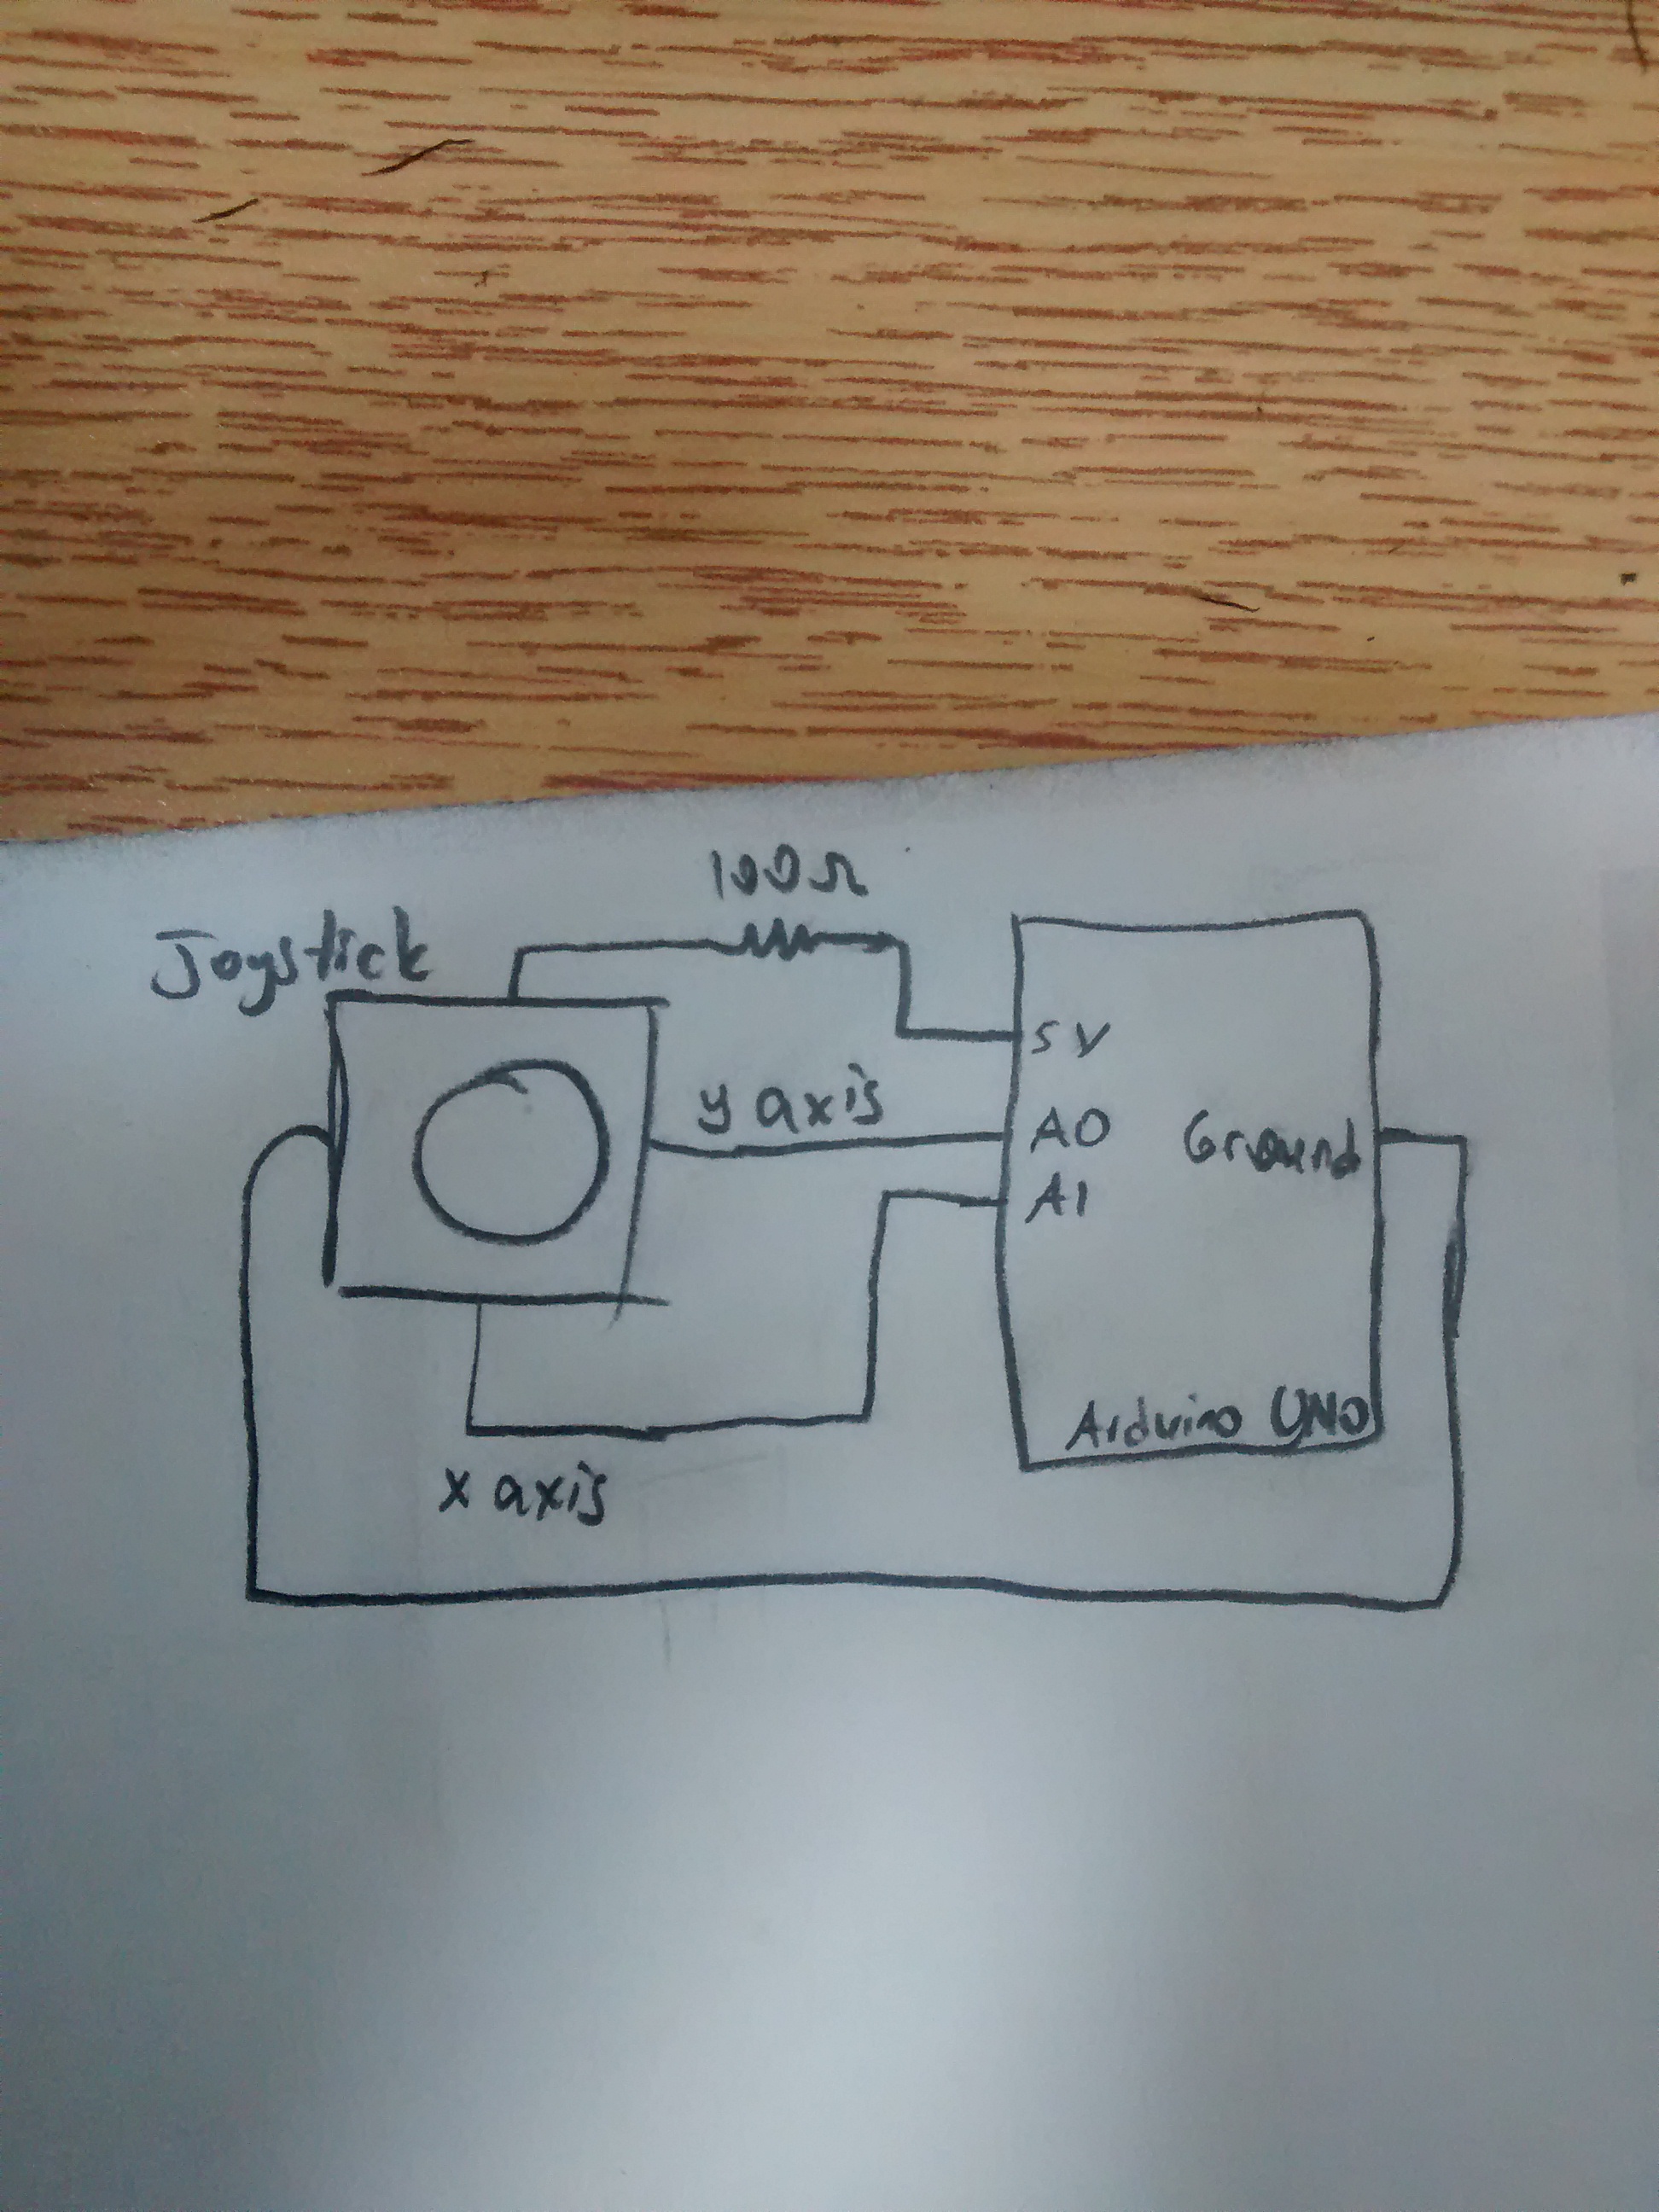 100Ω
Joystick
5V
y axis
A0
Ground
A1
Arduino UNO
x axis